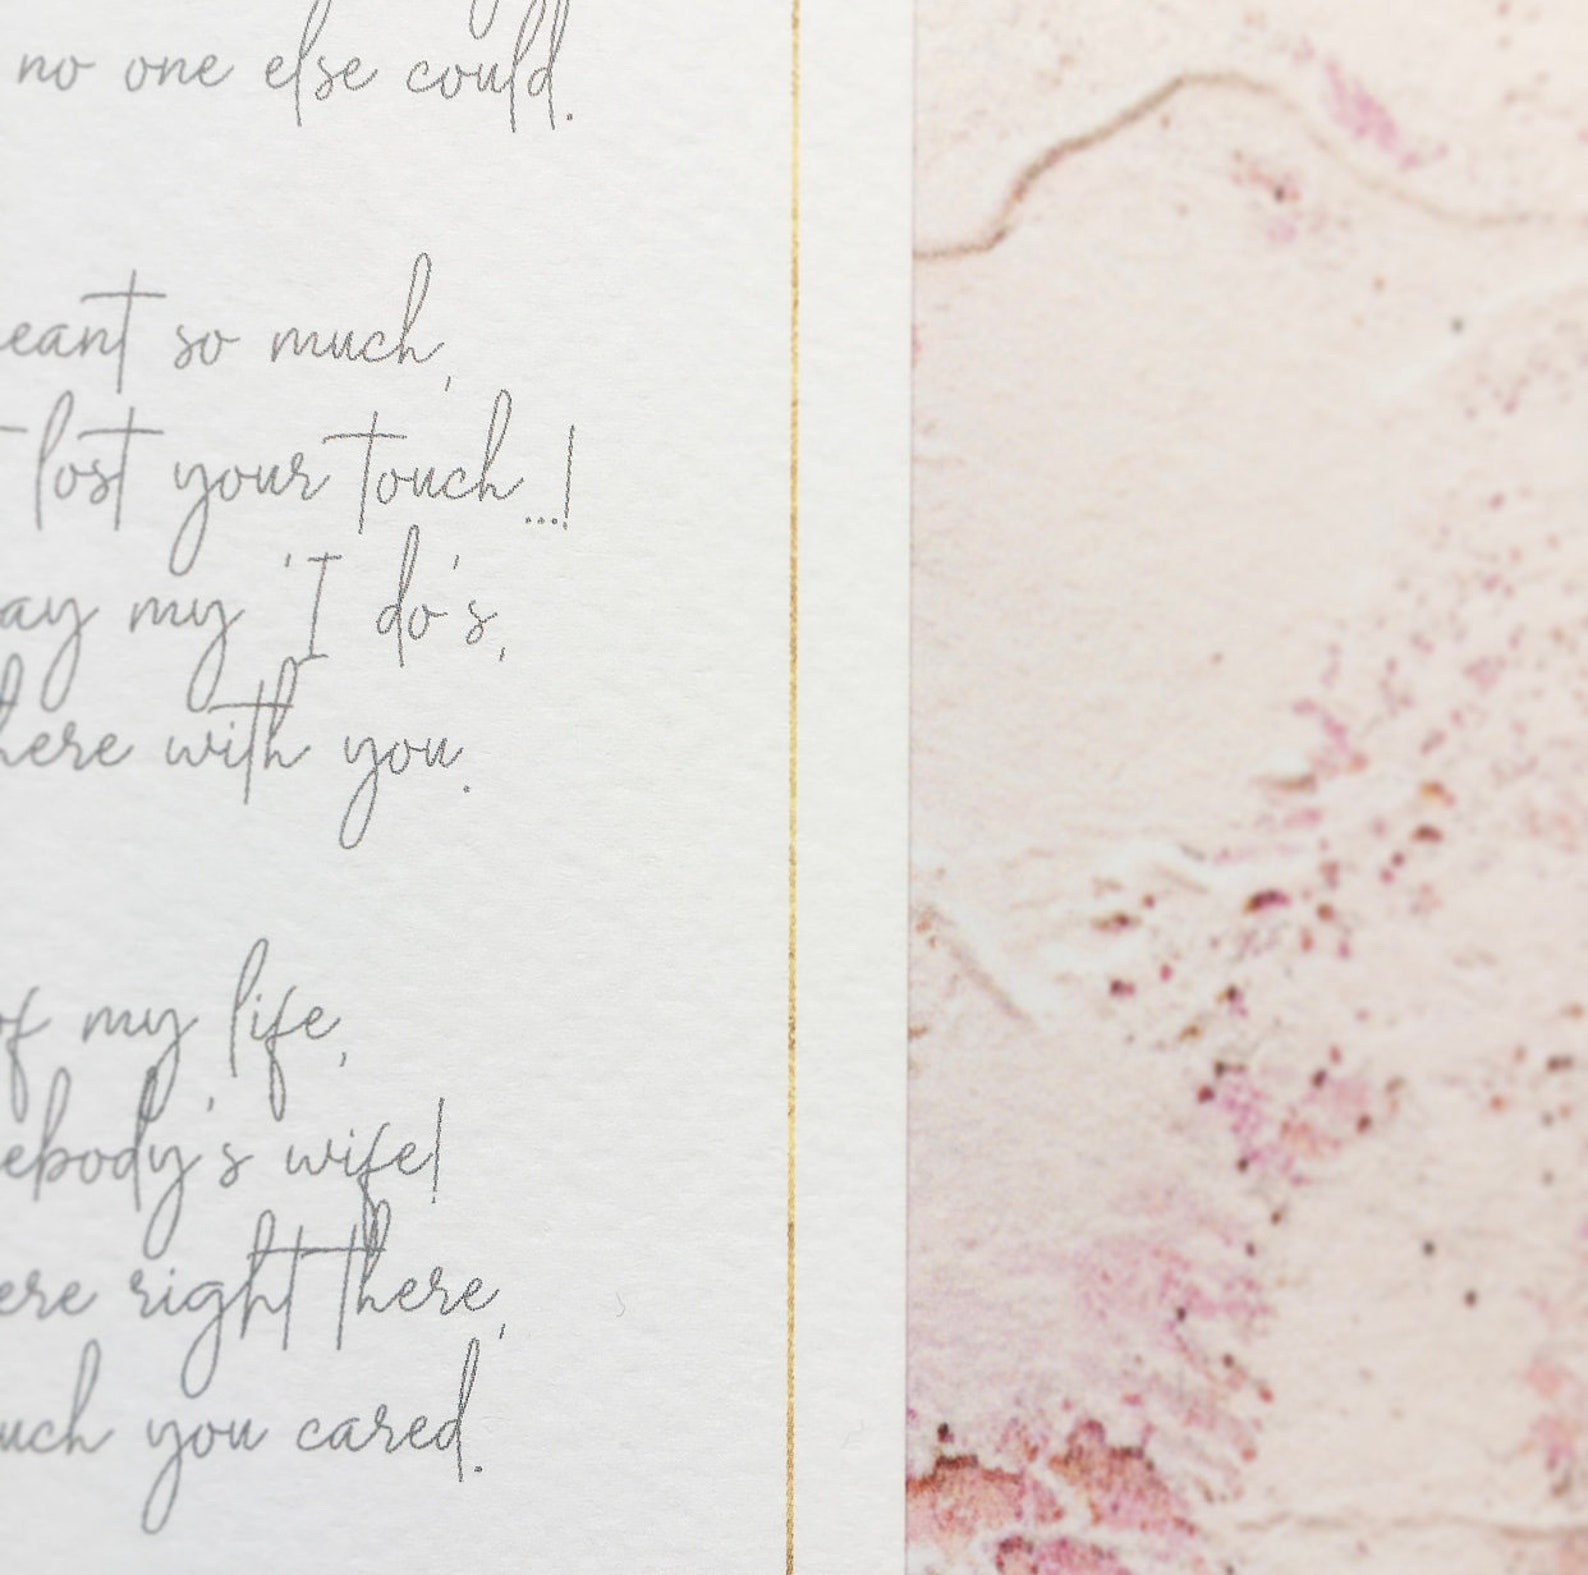 no one else could.
eant so much,
lost your touch...!
ay my 'I do's,
here with you.
of my life,
ebody's wife!
ere right there,
uch you cared.